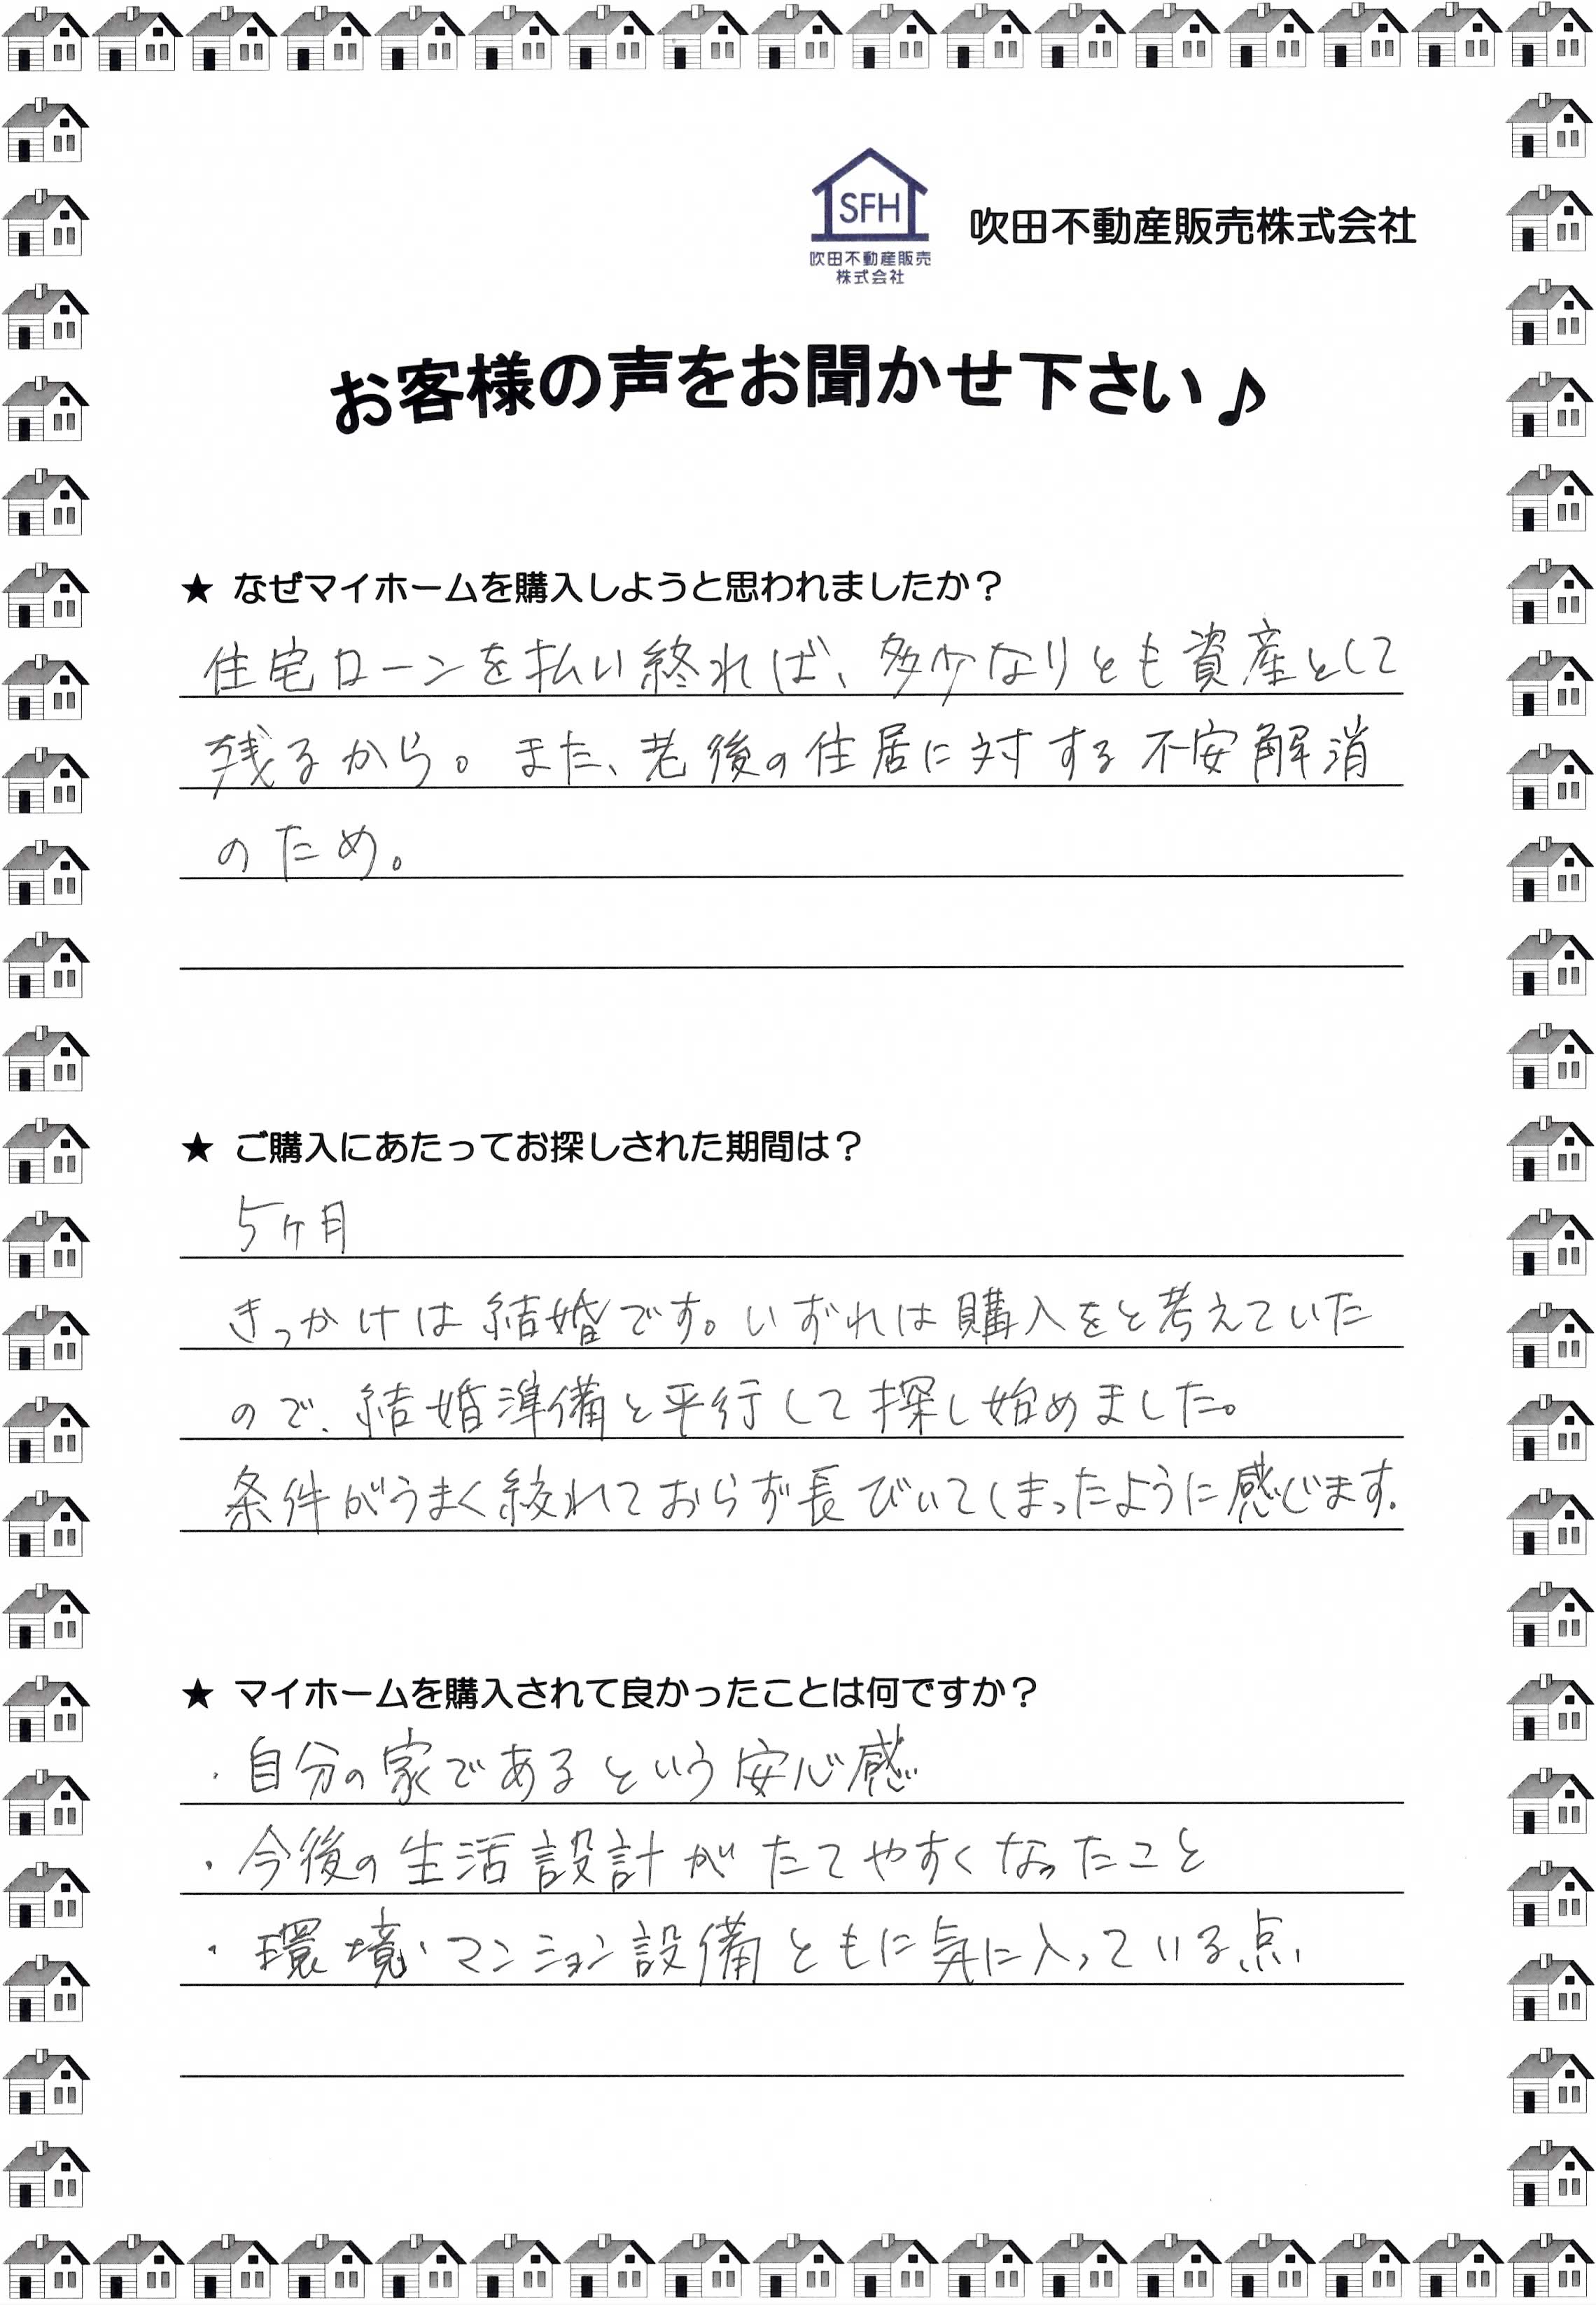 SFH
吹田不動産販売
株式会社
吹田不動産販売株式会社
お客様の声をお聞かせ下さい♪
★ なぜマイホームを購入しようと思われましたか？
住宅ローンを払い終れば、多少なりとも資産として
残るから。また、老後の住居に対する不安解消
のため。
★ ご購入にあたってお探しされた期間は？
5ヶ月
きっかけは結婚です。いずれは購入をと考えていた
ので、結婚準備と平行して探し始めました。
条件がうまく絞れておらず長びいてしまったように感じます.
★ マイホームを購入されて良かったことは何ですか？
・自分の家であるという安心感
・今後の生活設計がたてやすくなったこと
・環境・マンション設備ともに気に入っている点、